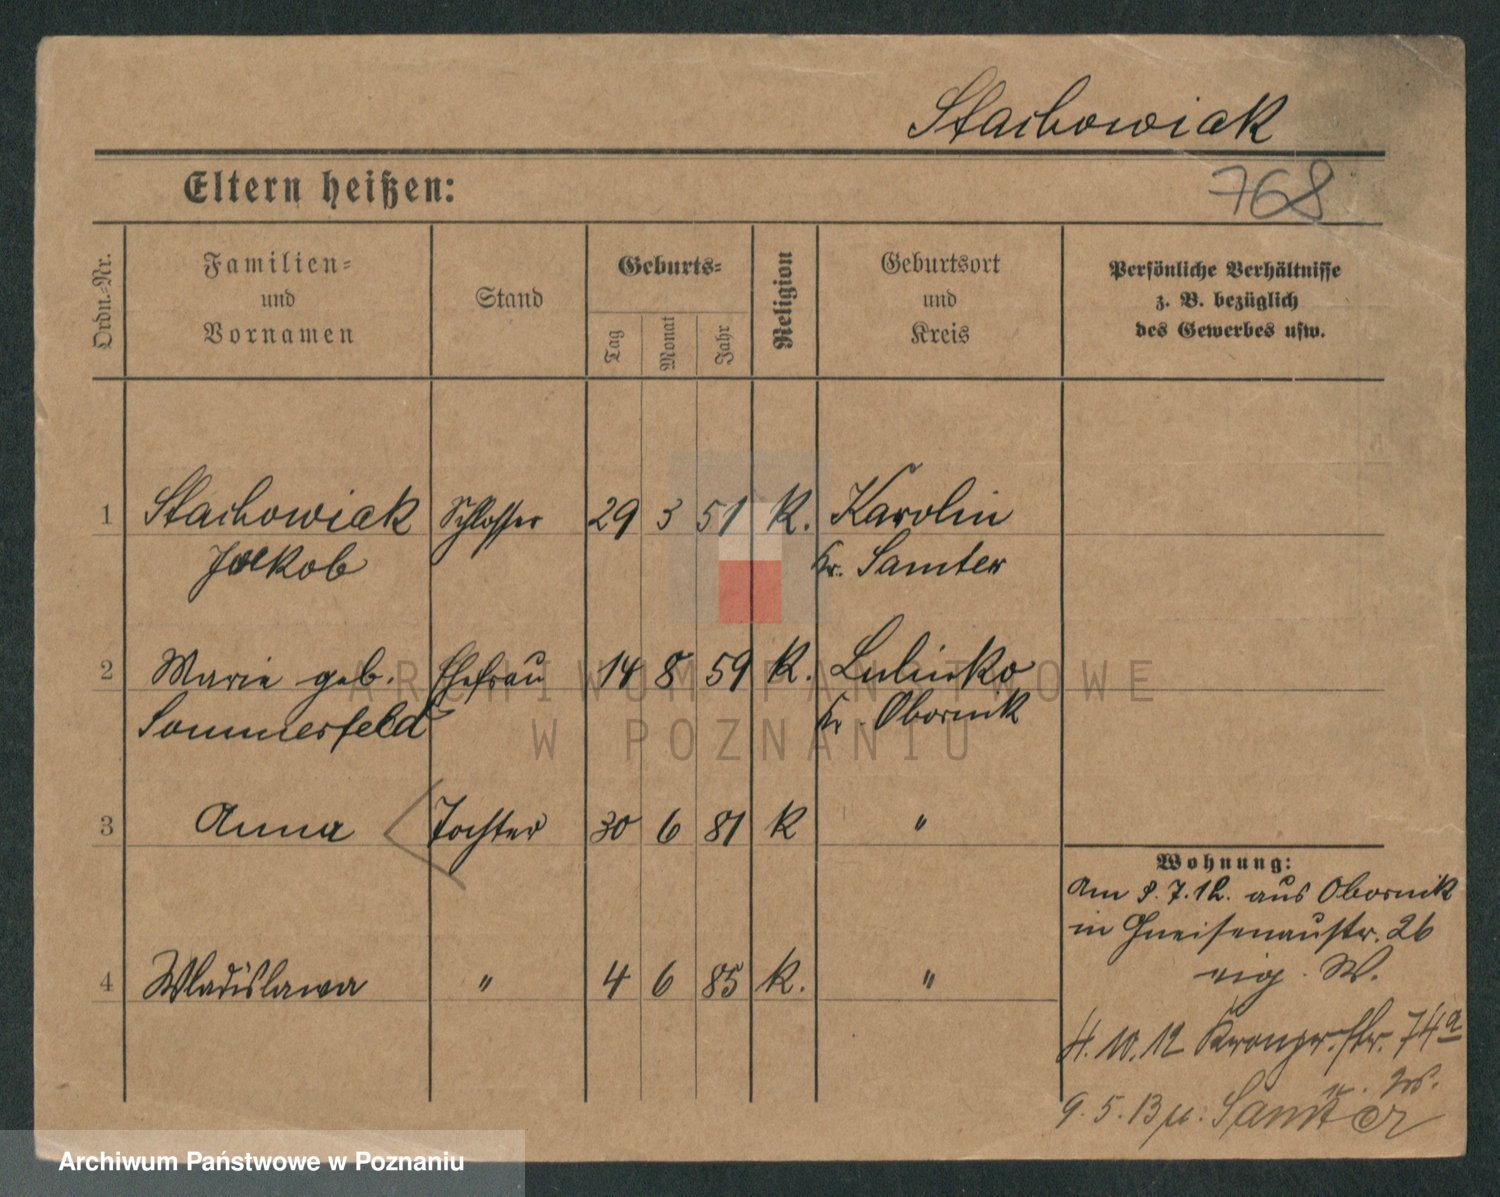 Stachowiak
Eltern heißen:
768
Ordn.-Nr.
Familien-
und
Vornamen
Stand
Geburts-
Tag
Monat
Jahr
Religion
Geburtsort
und
Kreis
Persönliche Verhältnisse
z. B. bezüglich
des Gewerbes usw.
1 Stachowiak Schlosser 29 3 51 K. Karolin
Jakob Kr. Samter
2 Marie geb. Ehefrau 14 8 59 K.
Sommerfeld Kr. Obornik
3 Anna Tochter 30 6 81 K "
Wohnung:
Am 8.7.12. aus Obornik
in Gneisenaustr. 26
eig. W.
4 Wladislawa " 4 6 85 K. "
4.10.12 Kronpr.str. 74a
9.5.13 Samter
ARCHIWUM PAŃSTWOWE
W POZNANIU
Archiwum Państwowe w Poznaniu